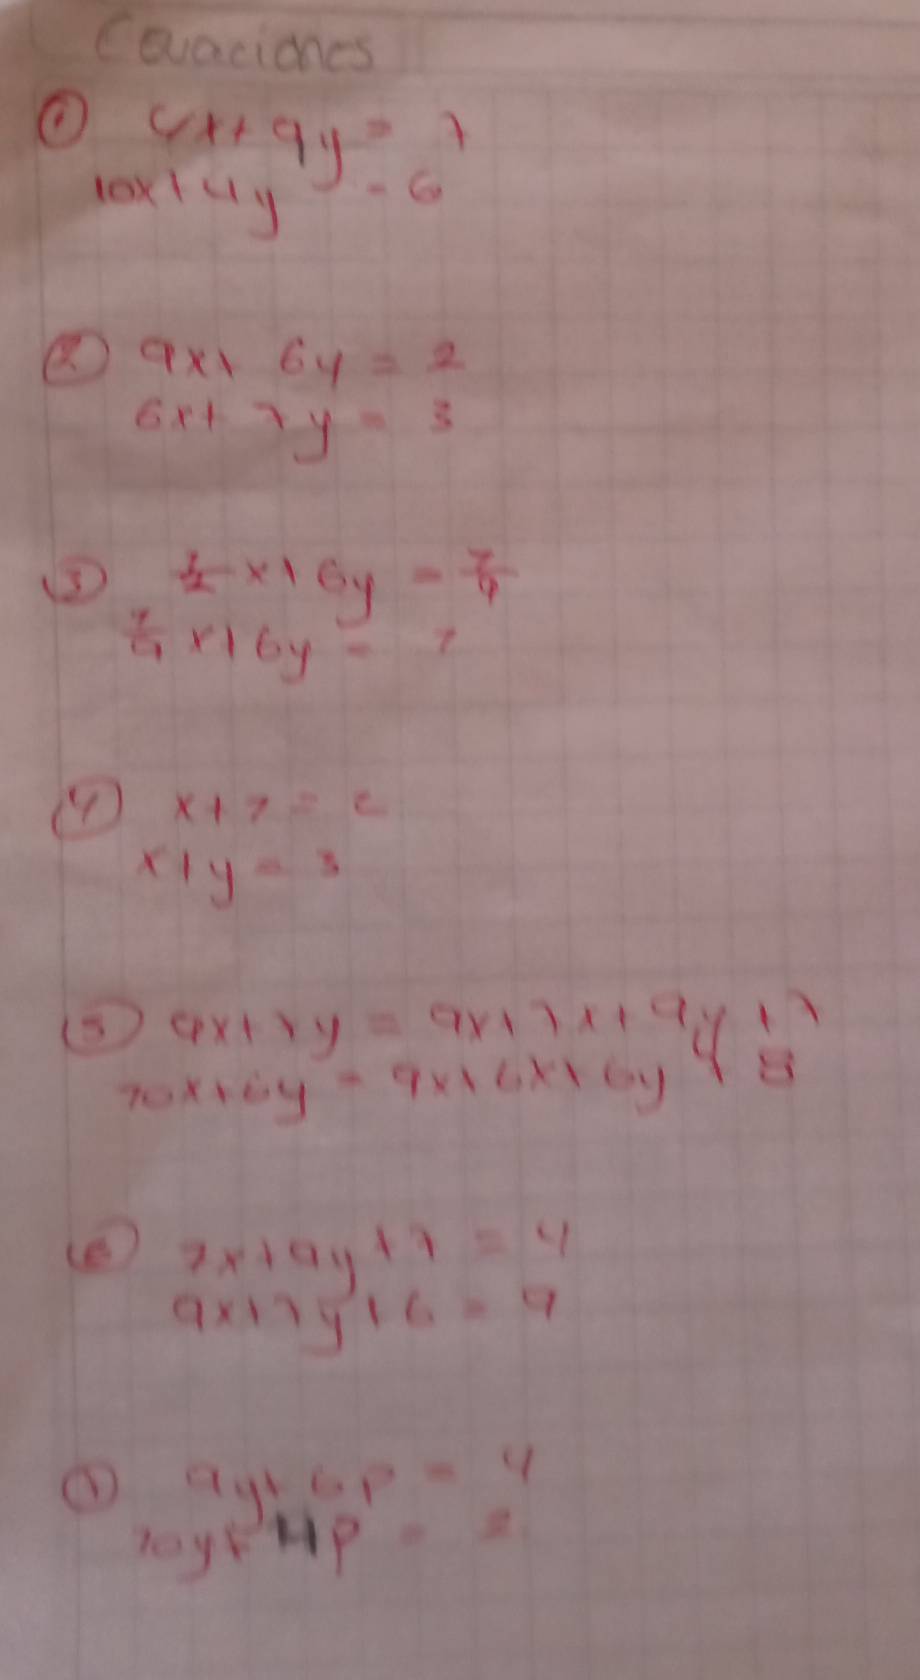 Ecuaciones
① 4x+9y=7
10x+4y=6
② 9x+6y=2
6x+7y=3
③ 1/2x+6y=7/9
7/9x+6y=7
④ x+7=2
x+y=3
⑤ 9x+7y=9x+7x+9y+7
70x+6y=9x+6x+6y+8
⑥ 7x+9y+7=4
9x+7y+6=9
⑦ 9y+6p=4
70y+4p=2